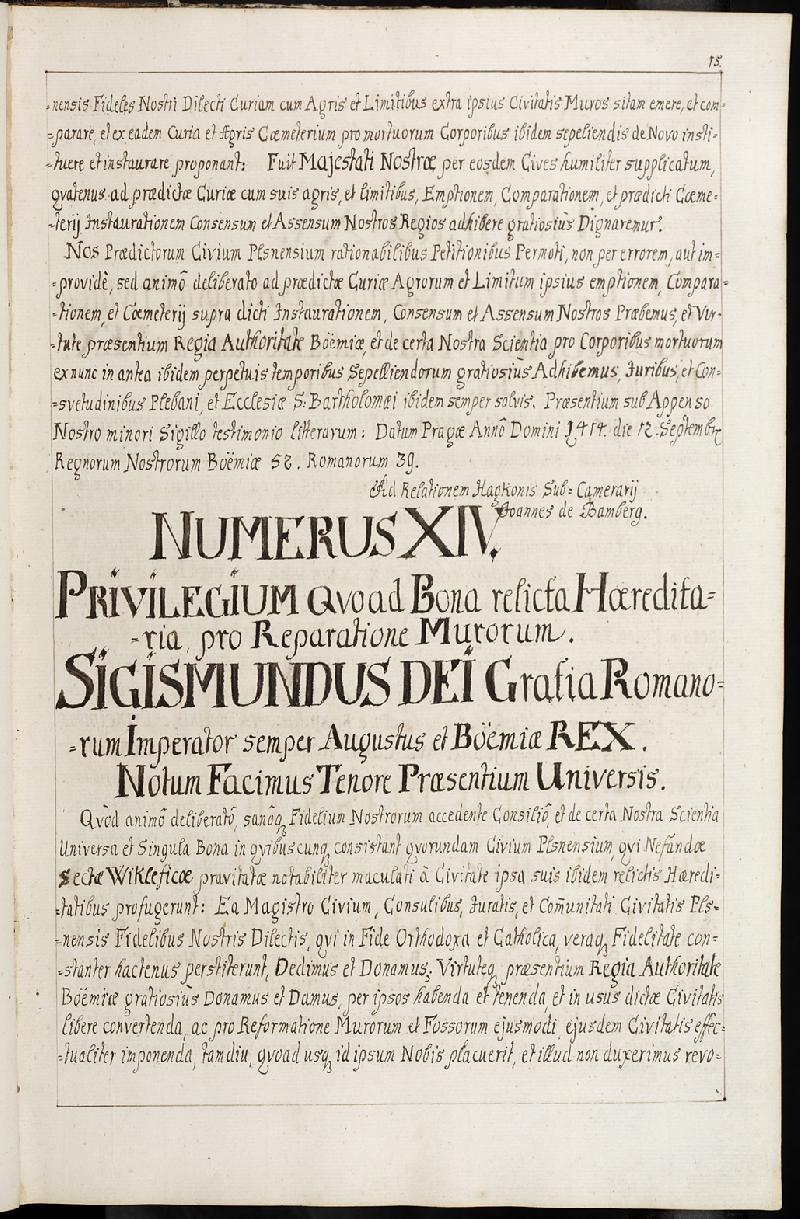 15.
-nensis Fideles Nostri Dilecti Curiam cum Agris et Limitibus extra ipsius Civitatis Muros sitam emere, et com-
-parare, et ex eadem Curia et Agris Cœmeterium pro mortuorum Corporibus ibidem sepeliendis de Novo insti-
-tuere et instaurare proponant: Fuit Majestati Nostræ per eosdem Cives humiliter supplicatum,
qvatenus ad prædictæ Curiæ cum suis agris, et limitibus, Emptionem, Comparationem, et prædicti Cœme-
-terij Instaurationem Consensum et Assensum Nostros Regios adhibere gratiosiùs Dignaremur.
Nos Prædictorum Civium Plsnensium rationabilibus Petitionibus Permoti, non per errorem, aut im-
-providè, sed animô deliberato ad prædictæ Curiæ Agrorum et Limitum ipsius emptionem, Compara-
-tionem, et Cœmeterij supra dicti Instaurationem, Consensum et Assensum Nostros Præbemus, et Vir-
-tute præsentium Regia Authoritate Böëmiæ, et de certa Nostra Scientia pro Corporibus mortuorum
ex nunc in antea ibidem perpetuis temporibus Sepelliendorum gratiosiùs Adhibemus, Juribus, et Con-
-svetudinibus Plebani, et Ecclesiæ S: Bartholomæi ibidem semper salvis. Præsentium sub Appenso
Nostro minori Sigillo testimonio litterarum: Datum Pragæ Annô Domini 1414. die 12. Septembr.
Regnorum Nostrorum Böëmiæ 52. Romanorum 39.
Ad Relationem Hagkonis Sub-Camerarij
Joannes de Bamberg.
NUMERUS XIV.
PRIVILEGIUM Qvoad Bona relicta Hæredita-
-ria, pro Reparatione Murorum.
SIGISMUNDUS DEI Gratia Romano-
-rum Imperator semper Augustus et Böëmiæ REX.
Notum Facimus Tenore Præsentium Universis.
Qvòd animô deliberatô, sanoq3 Fidelium Nostrorum accedente Consiliô et de certa Nostra Scientia
Universa et Singula Bona in qvibuscunq3 consistant qvorundam Civium Plsnensium, qvi Nefandæ
Sectæ Wikleficæ pravitatæ notabiliter maculati à Civitate ipsa suis ibidem relictis Hæredi-
-tatibus profugerunt: Ea Magistro Civium, Consulibus, Juratis, et Com̃unitati Civitatis Pls-
-nensis Fidelibus Nostris Dilectis, qvi in Fide Orthodoxa et Catholica, veraq3 Fidelitate con-
-stanter hactenus perstiterunt, Dedimus et Donamus: Virtuteq3 præsentium Regia Authoritate
Böëmiæ gratiosiùs Donamus et Damus, per ipsos habenda et tenenda, et in usus dictæ Civitatis
libere convertenda, ac pro Reformatione Murorum et Fossorum ejusmodi, ejusdem Civitatis effec-
-tualiter imponenda, tamdiu, qvoad usq3 id ipsum Nobis placuerit, et illud non duxerimus revo-